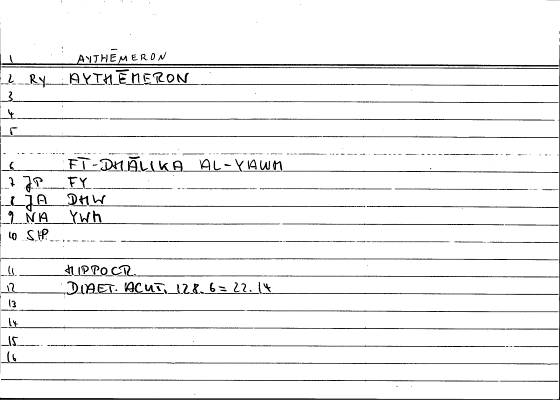 1 AYTHĒMERON
2 RY AYTHĒMERON
3
4
5
6 FĪ-DHĀLIKA AL-YAWM
7 JP FY
8 JA DHW
9 NA YWM
10 SP
11 HIPPOCR.
12 DIAET. ACUT. 128.6=22.14
13
14
15
16